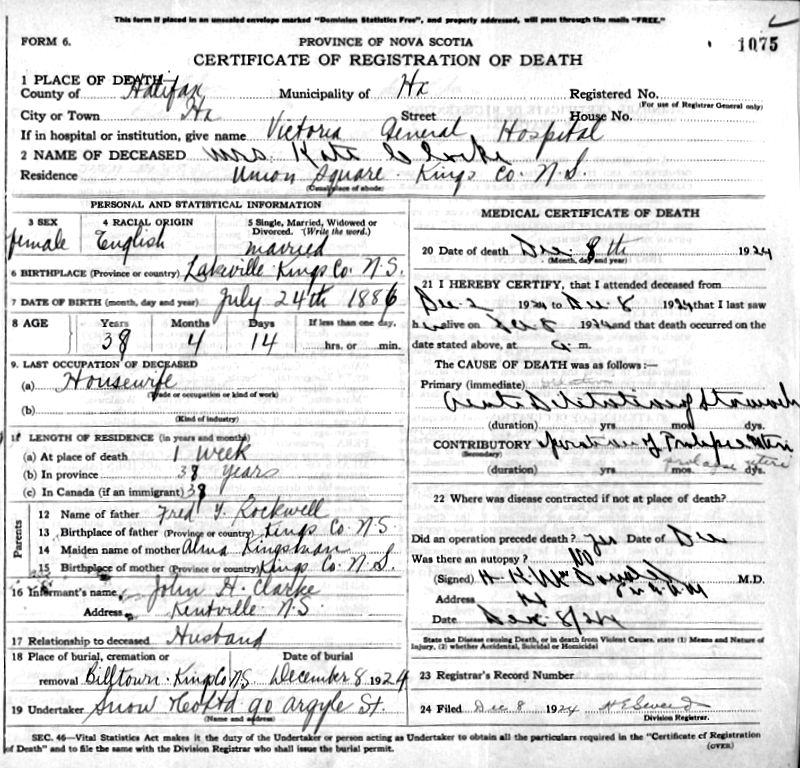 This form if placed in an unsealed envelope marked "Dominion Statistics Free", and properly addressed, will pass through the mails "FREE."
FORM 6.
PROVINCE OF NOVA SCOTIA
1075
CERTIFICATE OF REGISTRATION OF DEATH
1 PLACE OF DEATH
County of Halifax Municipality of Hx Registered No.
(For use of Registrar General only)
City or Town Hx Street House No.
If in hospital or institution, give name Victoria General Hospital
2 NAME OF DECEASED Mrs. Kate Clarke
Residence Union Square Kings Co. N.S.
(Usual place of abode)
PERSONAL AND STATISTICAL INFORMATION
3 SEX 4 RACIAL ORIGIN 5 Single, Married, Widowed or Divorced. (Write the word.)
female English married
6 BIRTHPLACE (Province or country) Lakeville Kings Co. N.S.
7 DATE OF BIRTH (month, day and year) July 24th 1886
8 AGE Years Months Days If less than one day,
38 4 14 hrs. or min.
9. LAST OCCUPATION OF DECEASED
(a) Housewife
(Trade or occupation or kind of work)
(b)
(Kind of industry)
11 LENGTH OF RESIDENCE (in years and months)
(a) At place of death 1 week
(b) In province 38 years
(c) In Canada (if an immigrant) 38
Parents
12 Name of father Fred Y. Rockwell
13 Birthplace of father (Province or country) Kings Co N.S.
14 Maiden name of mother Alma Kingsman
15 Birthplace of mother (Province or country) Kings Co. N.S.
16 Informant's name John H. Clarke
Address Kentville N.S.
17 Relationship to deceased Husband
18 Place of burial, cremation or Date of burial
removal Billtown Kings Co N.S December 8 1924
19 Undertaker Snow & Co Ltd 90 Argyle St.
(Name and address)
MEDICAL CERTIFICATE OF DEATH
20 Date of death Dec. 8th 1924
(Month, day and year)
21 I HEREBY CERTIFY, that I attended deceased from
Dec. 2 1924 to Dec. 8 1924 that I last saw
h alive on Dec 8 1924 and that death occurred on the
date stated above, at m.
The CAUSE OF DEATH was as follows:—
Primary (immediate)
Acute Dilatation of Stomach
(duration) yrs. mos. dys.
CONTRIBUTORY operation for Prolapse Uteri
(Secondary)
prolapse uteri
(duration) yrs. mos. dys.
22 Where was disease contracted if not at place of death?
Did an operation precede death? Yes Date of Dec
Was there an autopsy? No
(Signed) H K McDonald M.D.
Address Hx
Date Dec. 8/24
State the Disease causing Death, or in death from Violent Causes, state (1) Means and Nature of
Injury, (2) whether Accidental, Suicidal or Homicidal
23 Registrar's Record Number
24 Filed Dec 8 1924
Division Registrar.
SEC. 46—Vital Statistics Act makes it the duty of the Undertaker or person acting as Undertaker to obtain all the particulars required in the "Certificate of Registration
of Death" and to file the same with the Division Registrar who shall issue the burial permit.
(OVER)